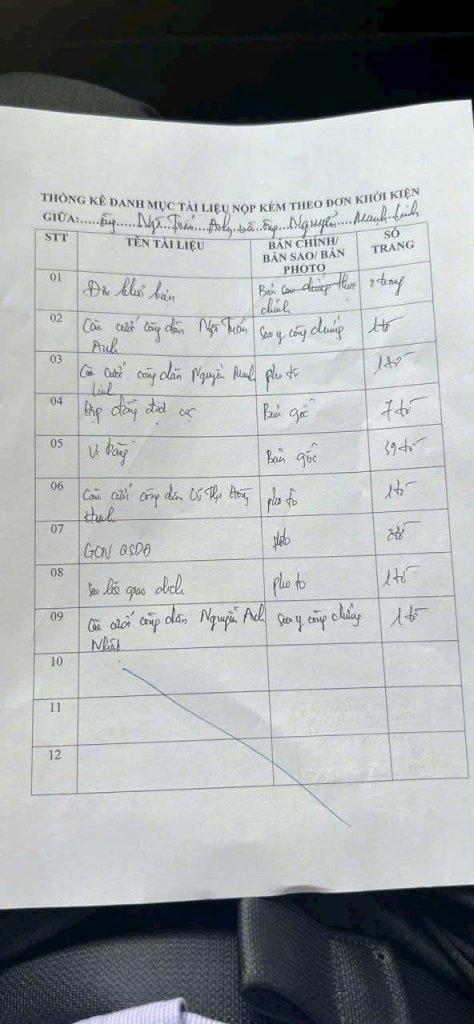 THỐNG KÊ DANH MỤC TÀI LIỆU NỘP KÈM THEO ĐƠN KHỞI KIỆN
GIỮA:.....ông...Ngô Tuấn...Anh...và ông...Nguyễn...Mạnh Linh
STT TÊN TÀI LIỆU BẢN CHÍNH/ BẢN SAO/ BẢN PHOTO SỐ TRANG
01 Đơn khởi kiện Bản chính 2 trang
02 Căn cước công dân Ngô Tuấn Anh Sao y công chứng 1 tờ
03 Căn cước công dân Nguyễn Mạnh Linh pho to 1 tờ
04 Hợp đồng đặt cọc Bản gốc 7 tờ
05 Vi Bằng Bản gốc 39 tờ
06 Căn cước công dân pho to 1 tờ
07 GCN QSDĐ photo 2 tờ
08 Sao kê giao dịch pho to 1 tờ
09 Căn cước công dân Nguyễn Anh Nhân Sao y công chứng 1 tờ
10
11
12